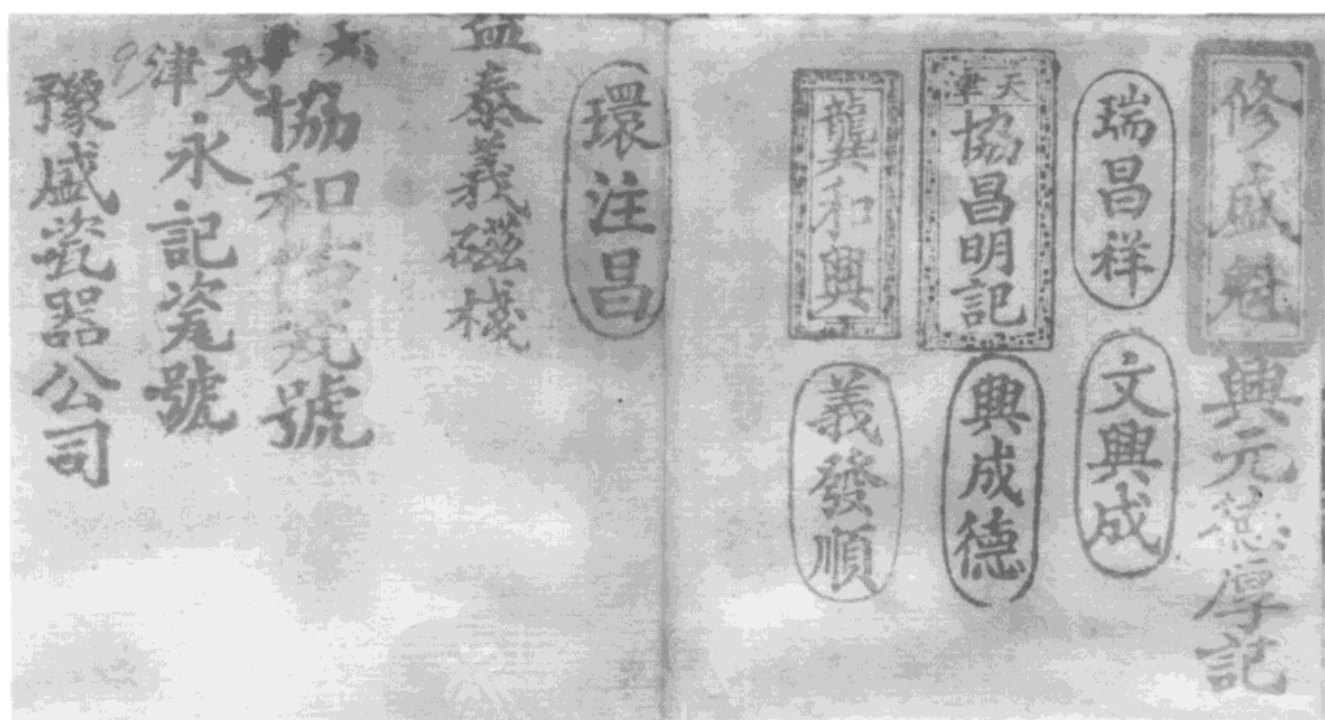 修盛魁
興元德厚記
瑞昌祥
文興成
天津
協昌明記
興成德
龔和興
義發順
環注昌
益泰義磁棧
天津
協和
號
天津
永記瓷號
豫盛瓷器公司